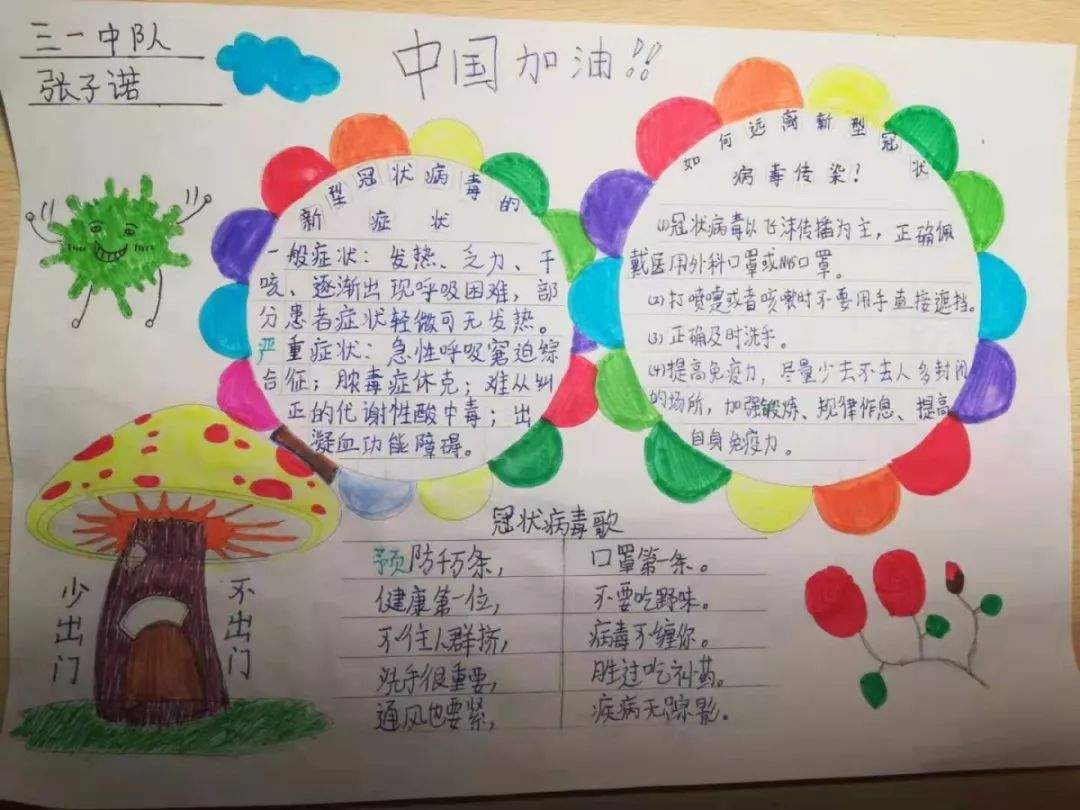 三一中队
张子诺
中国加油!!
新型冠状病毒的
症状
一般症状：发热、乏力、干
咳、逐渐出现呼吸困难，部
分患者症状轻微可无发热。
严重症状：急性呼吸窘迫综
合征；脓毒症休克；难从纠
正的代谢性酸中毒；出
凝血功能障碍。
如何远离新型冠状
病毒传染？
(1)冠状病毒以飞沫传播为主，正确佩
戴医用外科口罩或N95口罩。
(2)打喷嚏或者咳嗽时不要用手直接遮挡。
(3)正确及时洗手。
(4)提高免疫力，尽量少去不去人多封闭
的场所，加强锻炼、规律作息、提高
自身免疫力。
冠状病毒歌
预防千万条，口罩第一条。
健康第一位，不要吃野味。
不往人群挤，病毒不缠你。
洗手很重要，胜过吃补药。
通风也要紧，疾病无踪影。
少出门
不出门